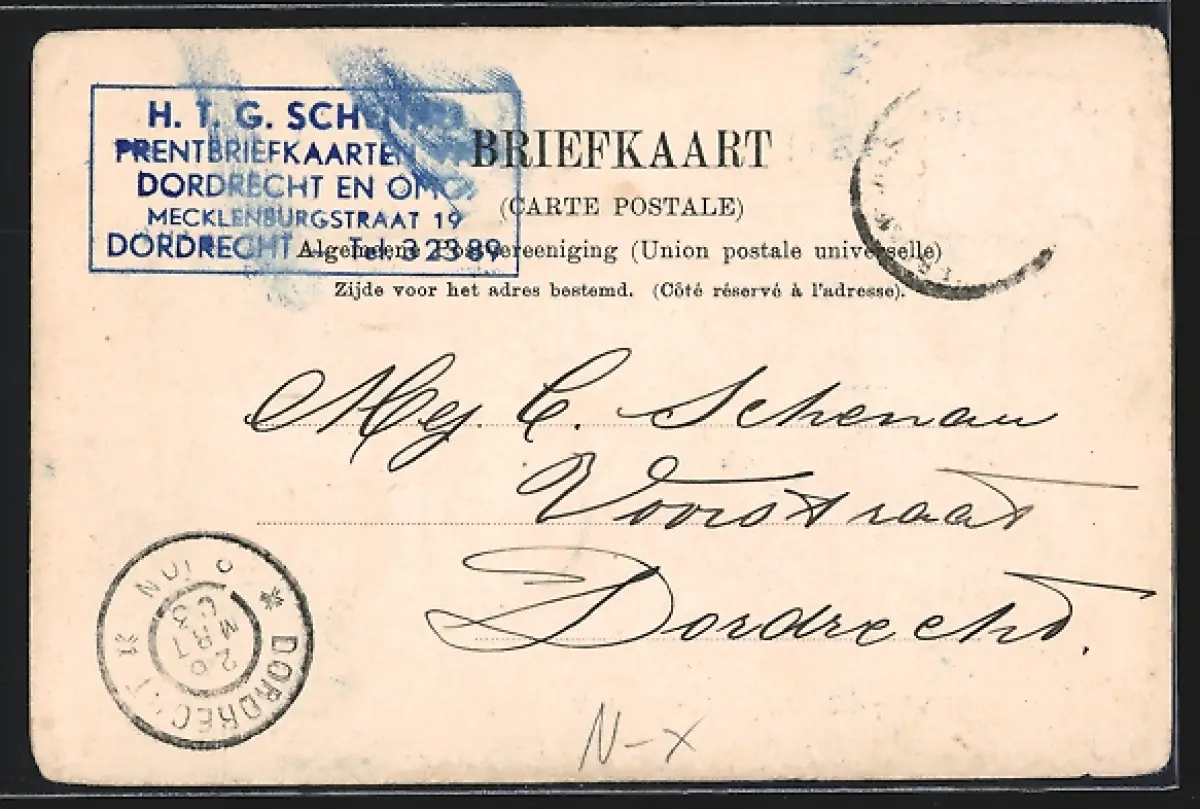 H. T. G.
PRENTBRIEFKAARTEN
DORDRECHT EN
MECKLENBURGSTRAAT 19
DORDRECHT – Tel. 3 23 89
BRIEFKAART
(CARTE POSTALE)
Algemeene Postvereeniging (Union postale universelle)
Zijde voor het adres bestemd. (Côté réservé à l'adresse).
Mej. C. Schenau
Voorstraat
Dordrecht.
DORDRECHT
26
MRT
03
N-x